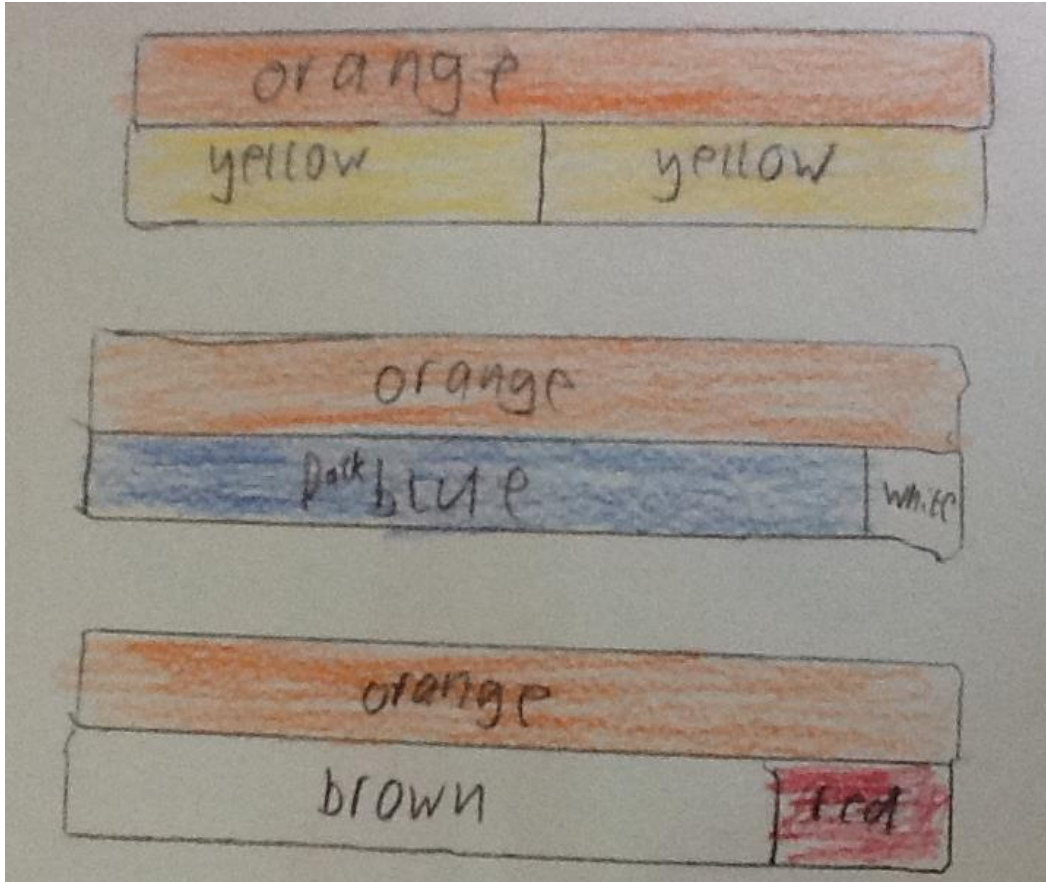 orange
yellow yellow
orange
Dark blue white
orange
brown red